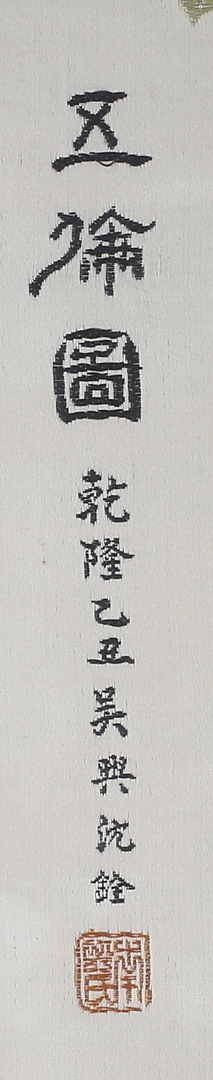 五倫圖 乾隆乙丑吳興沈銓